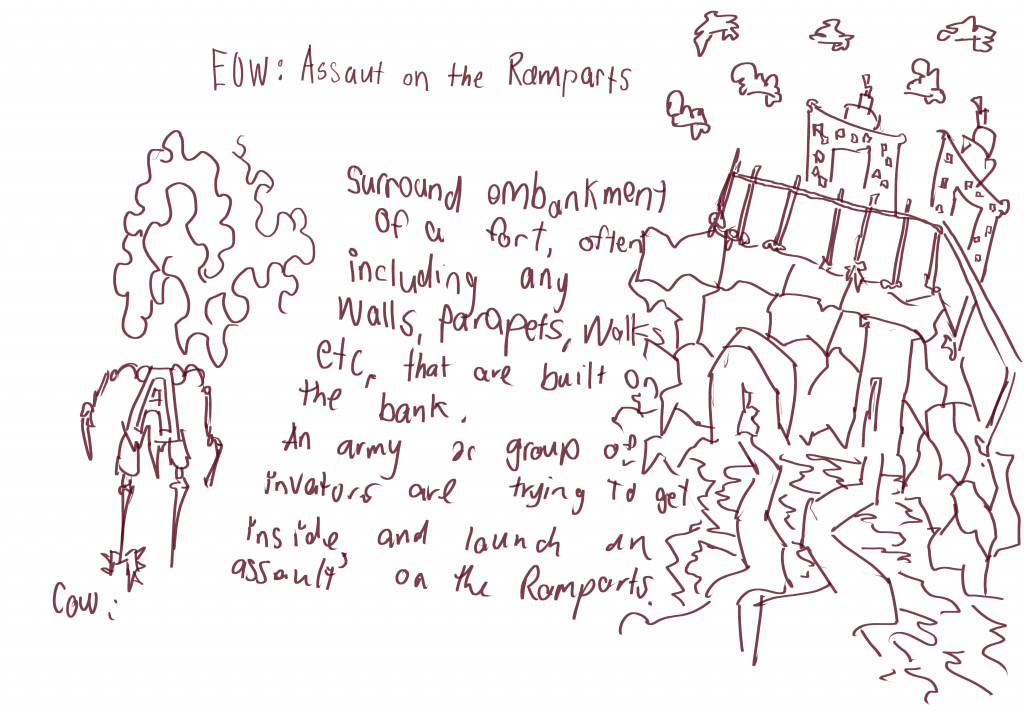 EOW: Assaut on the Ramparts
Surround embankment
of a fort, often
including any
walls, parapets, walks
etc, that are built on
the bank.
An army or group of
invators are trying to get
inside, and launch an
assault on the Ramparts.
Cow: